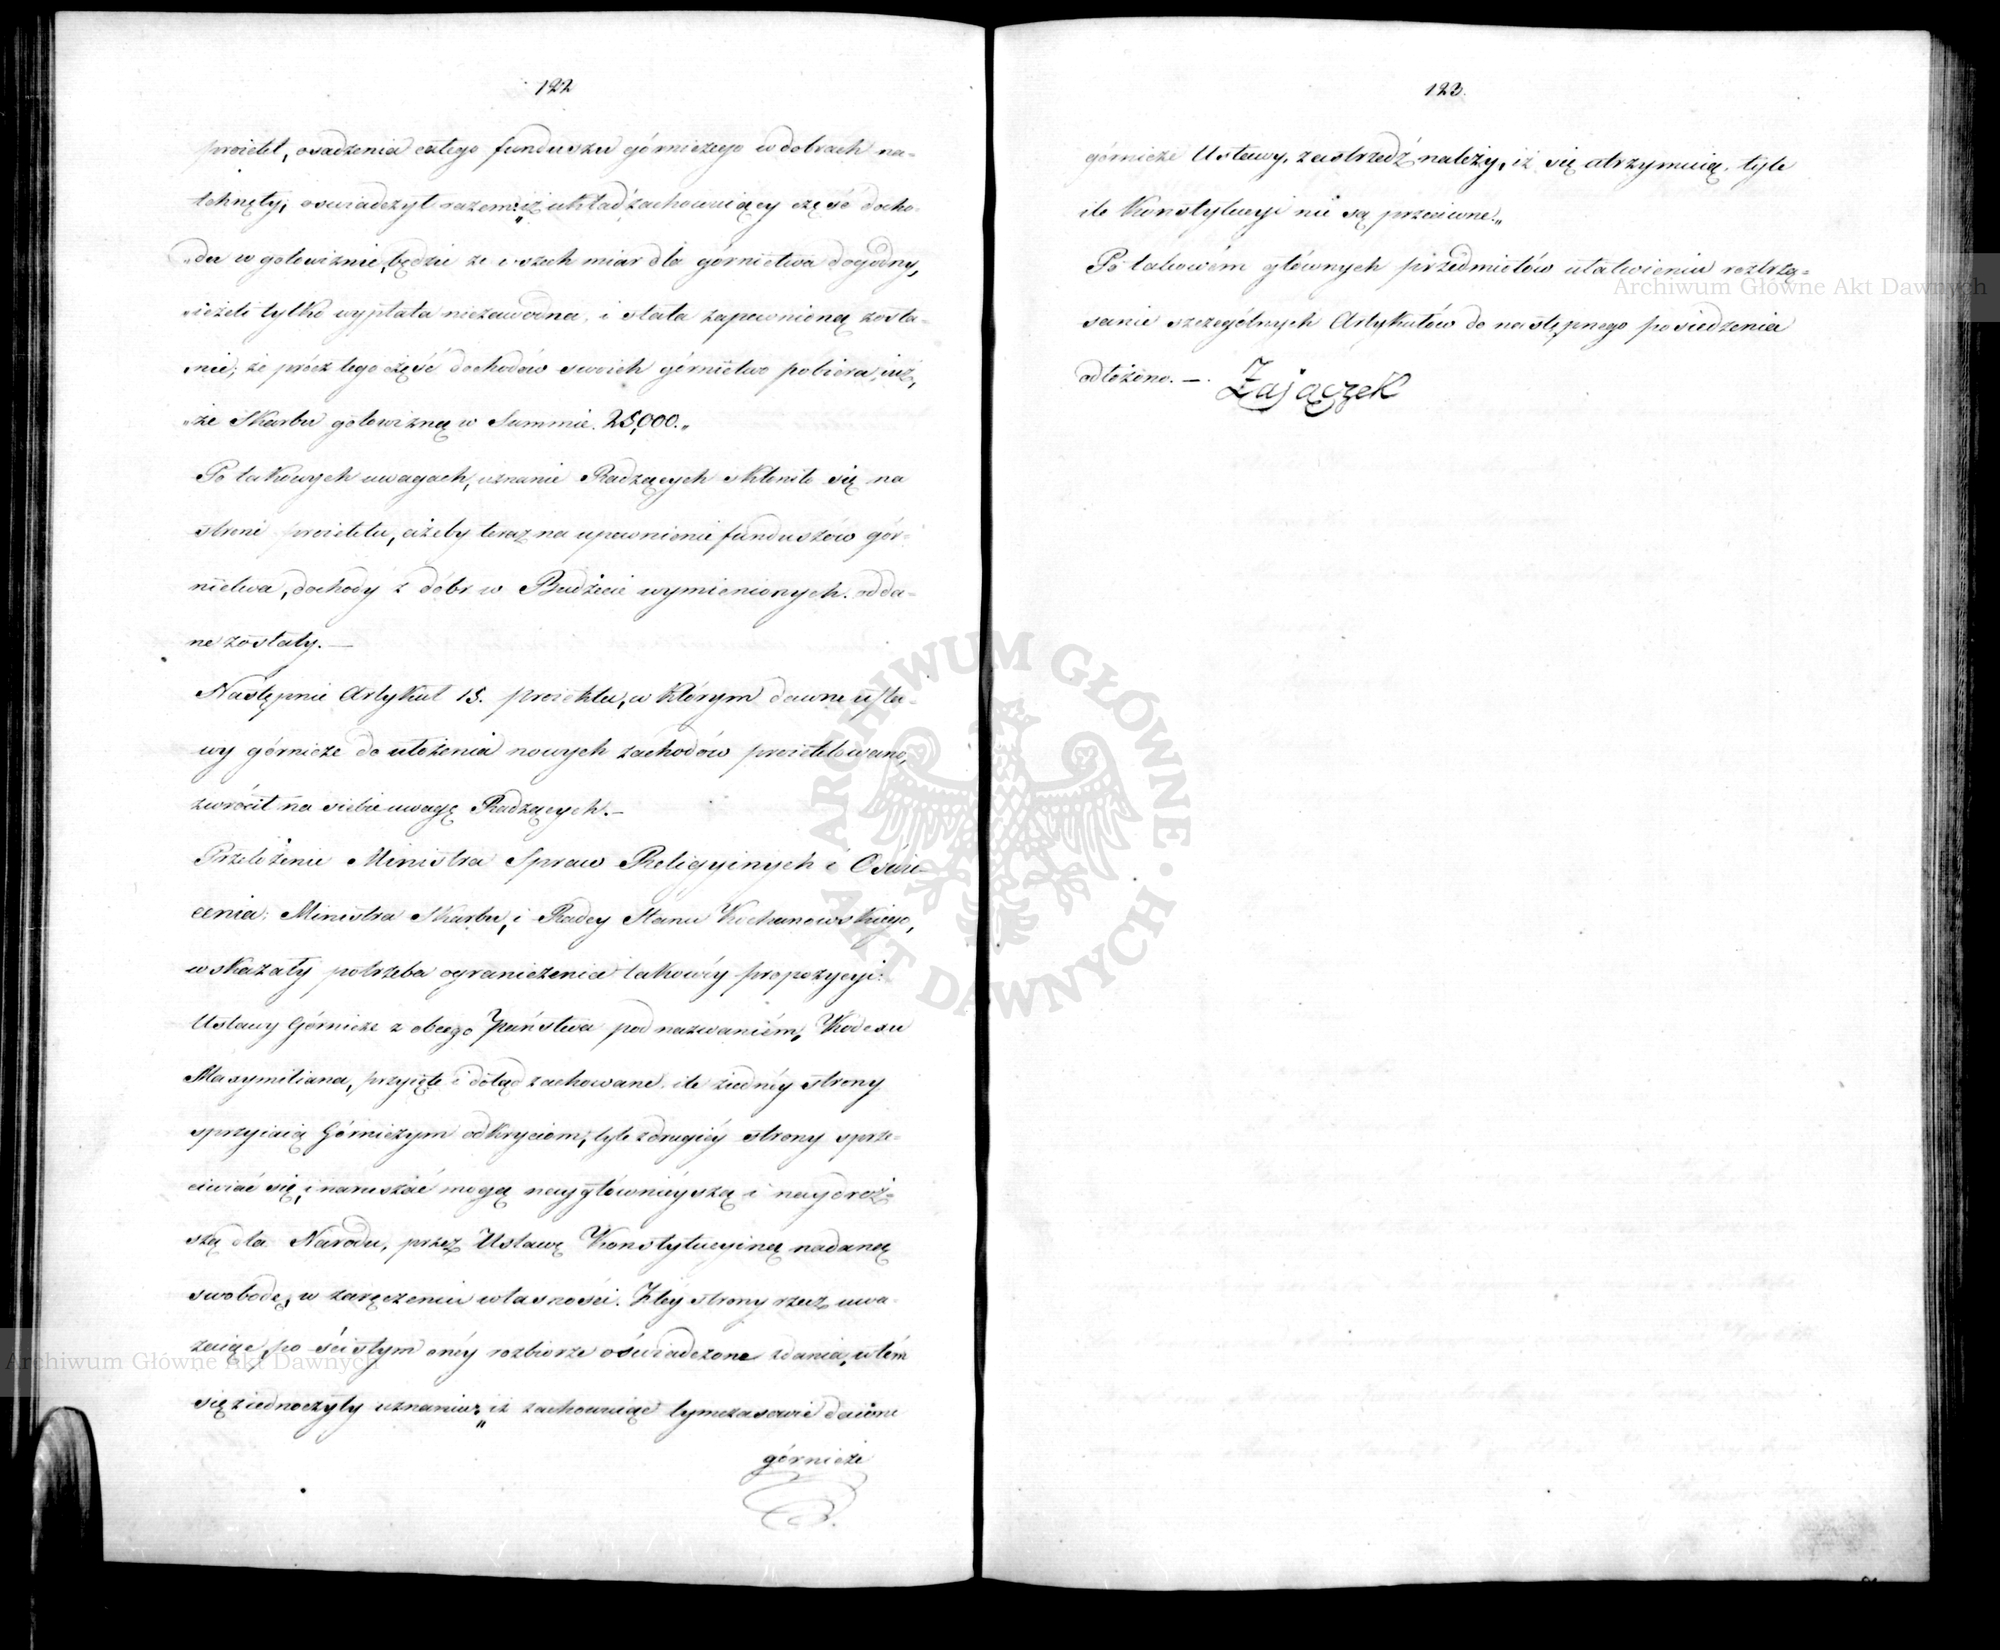 122
proiekt, osadzenia całego funduszu górniczego w dobrach na-
tchnęty, oswiadczył razem: „iż układ zachowuiący część docho-
„du w gotowiznie, będzie ze wszech miar dla górnictwa dogodny,
„ieżeli tylko wypłata niezawodna, i stała zapewnioną zosta-
„nie; że prócz tego część dochodów swoich górnictwo pobiera iuż,
„ze Skarbu gotowizną w Summie 25,000.„
Po takowych uwagach, uznanie Radzących skłoniło się na
stronę proiektu, ażeby teraz na upewnienie funduszów gór-
nictwa, dochody z dóbr w Budżecie wymienionych. odda-
ne zostały. —
Następnie Artykuł 15. proiektu, w którym dawne usta-
wy górnicze do ułożenia nowych zachodów proiektowano,
zwrócił na siebie uwagę Radzących. —
Przełożenie Ministra Spraw Religyinych i Oświe-
cenia; Ministra Skarbu, i Radcy Stanu Kochanowskiego,
wskazały potrzeba ograniczenia takowéy propozycyi:
Ustawy Górnicze z obcego Państwa pod nazwaniem, Kodexu
Maxymiliana, przyięte i dotąd zachowane, ile ziednéy strony
sprzyiaią Górniczym odkryciom, tyle zdrugiéy strony sprze-
ciwiać się, i naruszać mogą naygłównieyszą i naydroż-
szą dla Narodu, przez Ustawę Konstytucyiną nadaną
swobodę, w zaręczeniu własności. Ztéy strony rzecz uwa-
żaiąc, po ścisłym onéy rozbiorze oświadczone zdania, wtém
się ziednoczyły uznaniu: „iż zachowuiąc tymczasowie dawne
górnicze
123.
górnicze Ustawy, zastrzedz należy, iż się utrzymuią, tyle
ile Konstytucyi nie są przeciwne.„
Po takowém głównych przedmiotów ułatwieniu roztrzą-
sanie szczególnych Artykułów do następnego posiedzenia
odłożono. —
Zajączek
Archiwum Główne Akt Dawnych
ARCHIWUM GŁÓWNE AKT DAWNYCH
Archiwum Główne Akt Dawnych